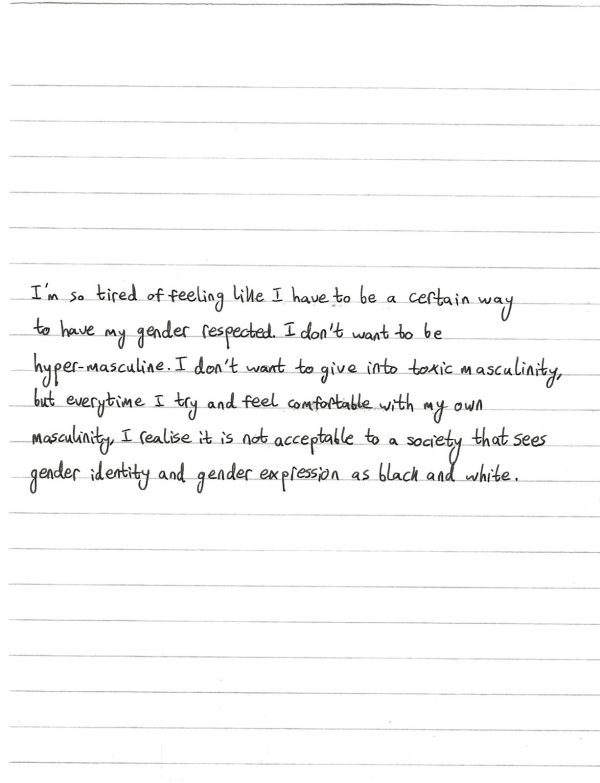 I'm so tired of feeling like I have to be a certain way
to have my gender respected. I don't want to be
hyper-masculine. I don't want to give into toxic masculinity,
but everytime I try and feel comfortable with my own
masculinity, I realise it is not acceptable to a society that sees
gender identity and gender expression as black and white.